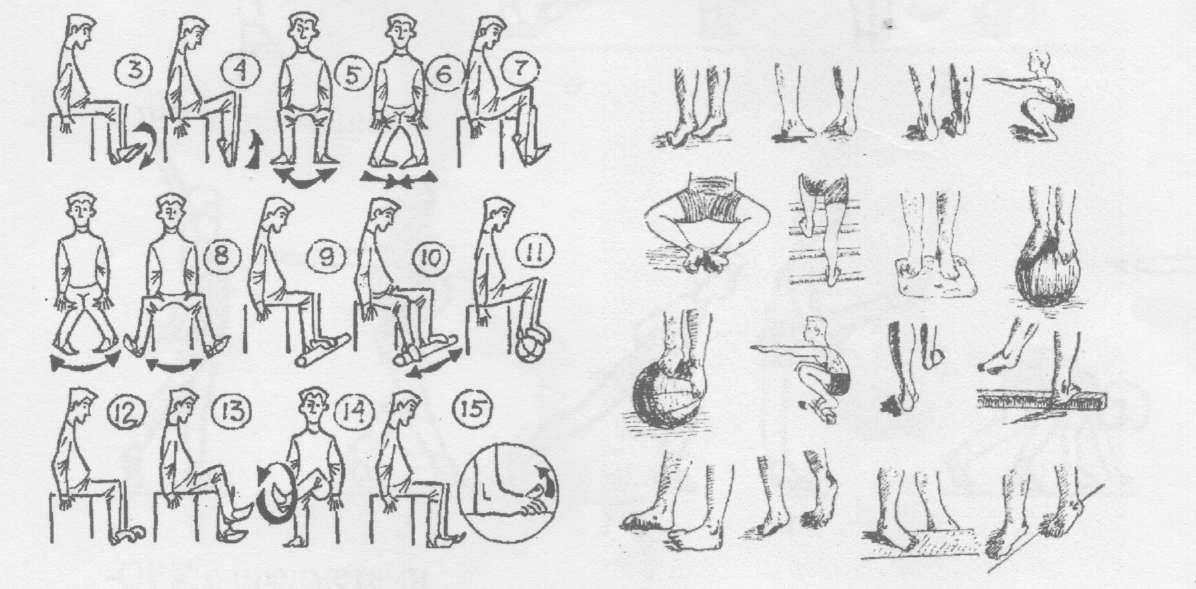 3 4 5 6 7
8 9 10 11
12 13 14 15